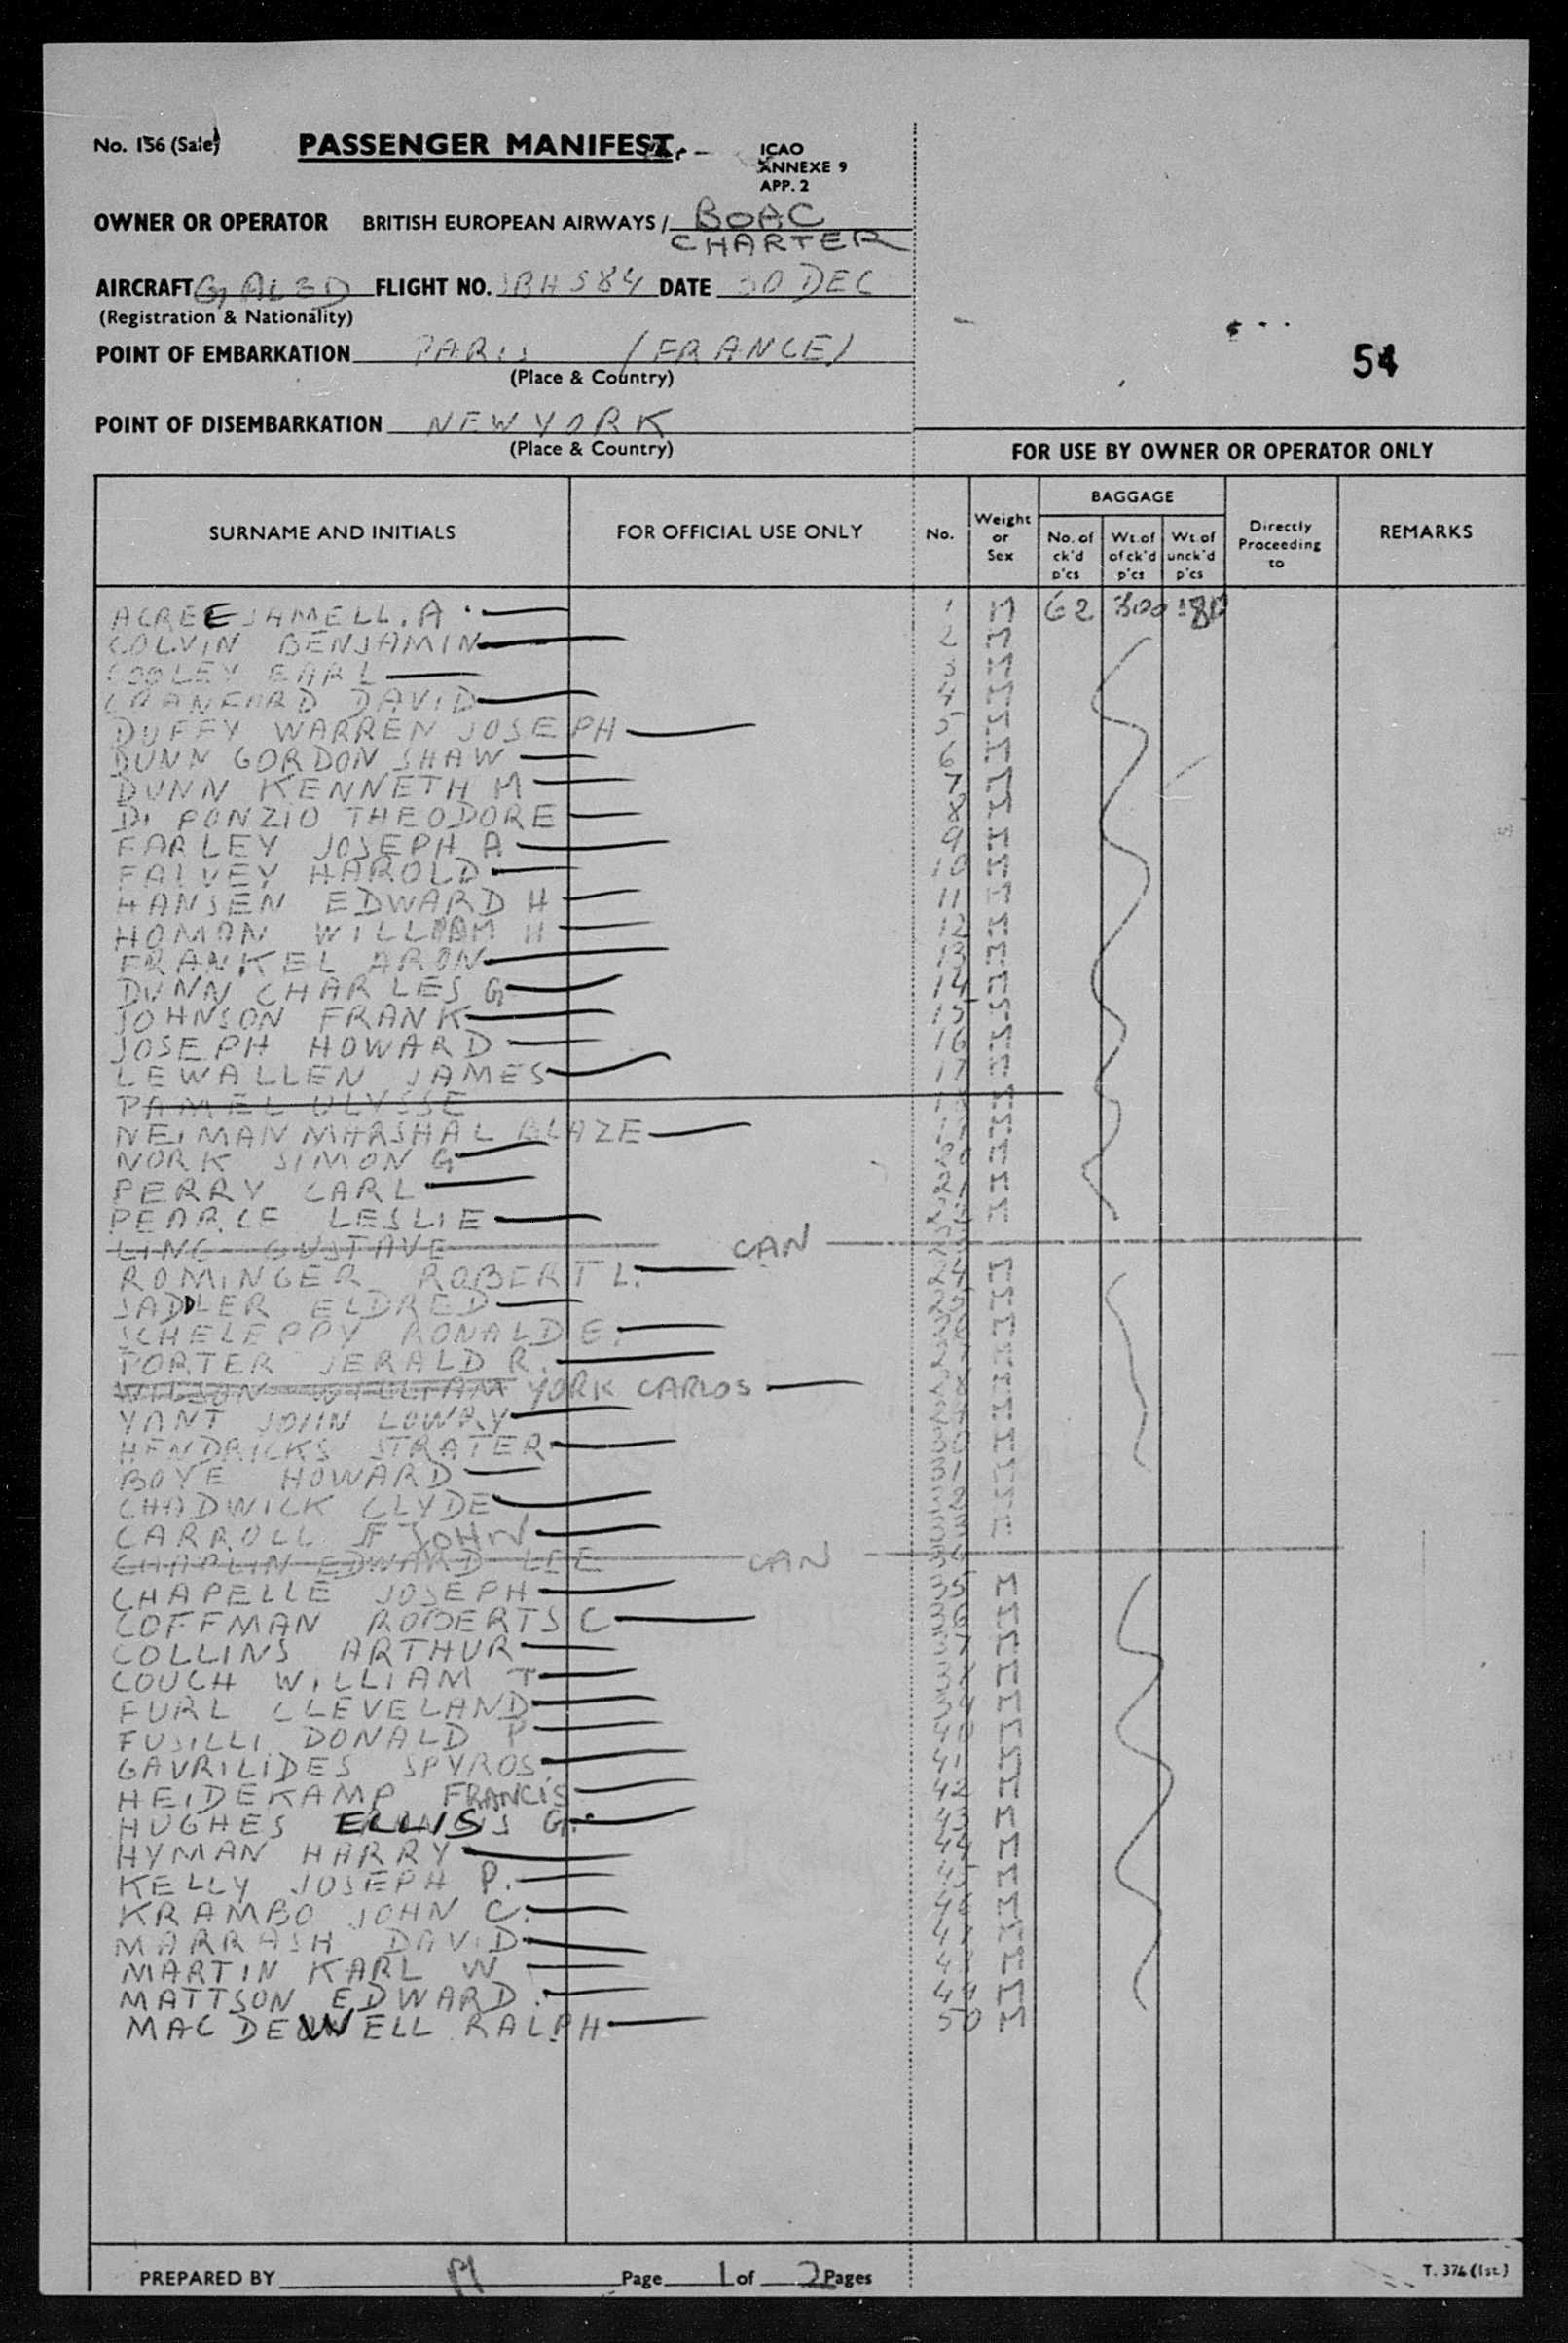 No. 156 (Sale)
PASSENGER MANIFEST
ICAO
ANNEXE 9
APP. 2
OWNER OR OPERATOR BRITISH EUROPEAN AIRWAYS / BOAC
CHARTER
AIRCRAFT G ALED FLIGHT NO. SBH 584 DATE 30 DEC
(Registration & Nationality)
POINT OF EMBARKATION PARIS (FRANCE)
(Place & Country)
54
POINT OF DISEMBARKATION NEW YORK
(Place & Country)
FOR USE BY OWNER OR OPERATOR ONLY
SURNAME AND INITIALS FOR OFFICIAL USE ONLY No. Weight or Sex BAGGAGE No. of ck'd p'cs Wt. of of ck'd p'cs Wt. of unck'd p'cs Directly Proceeding to REMARKS
ACREE JAMELL. A 1 M 62 300 180
COLVIN BENJAMIN 2 M
COOLEY EARL 3 M
CRANFORD DAVID 4 M
DUFFY WARREN JOSEPH 5 M
DUNN GORDON SHAW 6 M
DUNN KENNETH M 7 M
DI PONZIO THEODORE 8 M
FARLEY JOSEPH A 9 M
FALVEY HAROLD 10 M
HANSEN EDWARD H 11 M
HOMAN WILLIAM H 12 M
FRANKEL ARON 13 M
DUNN CHARLES G 14 M
JOHNSON FRANK 15 M
JOSEPH HOWARD 16 M
LEWALLEN JAMES 17 M
PAMEL ULYSSE M
NEIMAN MARSHAL BLAZE M
NORK SIMON G M
PERRY CARL M
PEARCE LESLIE M
LING GUSTAVE CAN
ROMINGER ROBERT L. M
SADDLER ELDRED M
SCHELEPPY RONALD E. M
PORTER JERALD R. M
WILSON WILLIAM YORK CARLOS M
YANT JOHN LOWRY M
HENDRICKS STRATER M
BOYE HOWARD M
CHADWICK CLYDE M
CARROLL F JOHN M
CHAPLIN EDWARD LEE CAN
CHAPELLE JOSEPH M
COFFMAN ROBERTS C M
COLLINS ARTHUR M
COUCH WILLIAM T M
FURL CLEVELAND M
FUSILLI DONALD P 40 M
GAVRILIDES SPYROS 41 M
HEIDEKAMP FRANCIS 42 M
HUGHES ELLIS G. 43 M
HYMAN HARRY 44 M
KELLY JOSEPH P. 45 M
KRAMBO JOHN C. 46 M
MARRASH DAVID 47 M
MARTIN KARL W M
MATTSON EDWARD 49 M
MAC DEWELL RALPH 50 M
PREPARED BY Page 1 of 2 Pages
T. 374 (1st.)